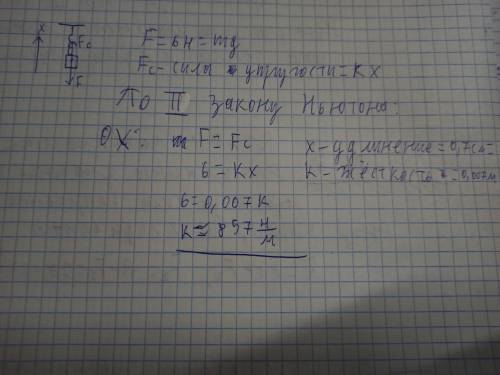 x Fc F
F = 6Н = mg
Fc - силы упругости = Kx
По II закону Ньютона:
OX: F = Fc x - удлинение = 0,7см =
6 = Kx K - жёсткость = 0,007м
6 = 0,007K
K ≈ 857 Н/м